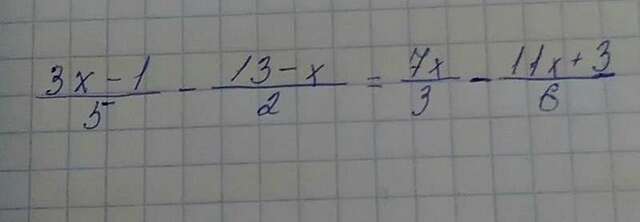 (3x-1)/5 - (13-x)/2 = 7x/3 - (11x+3)/6